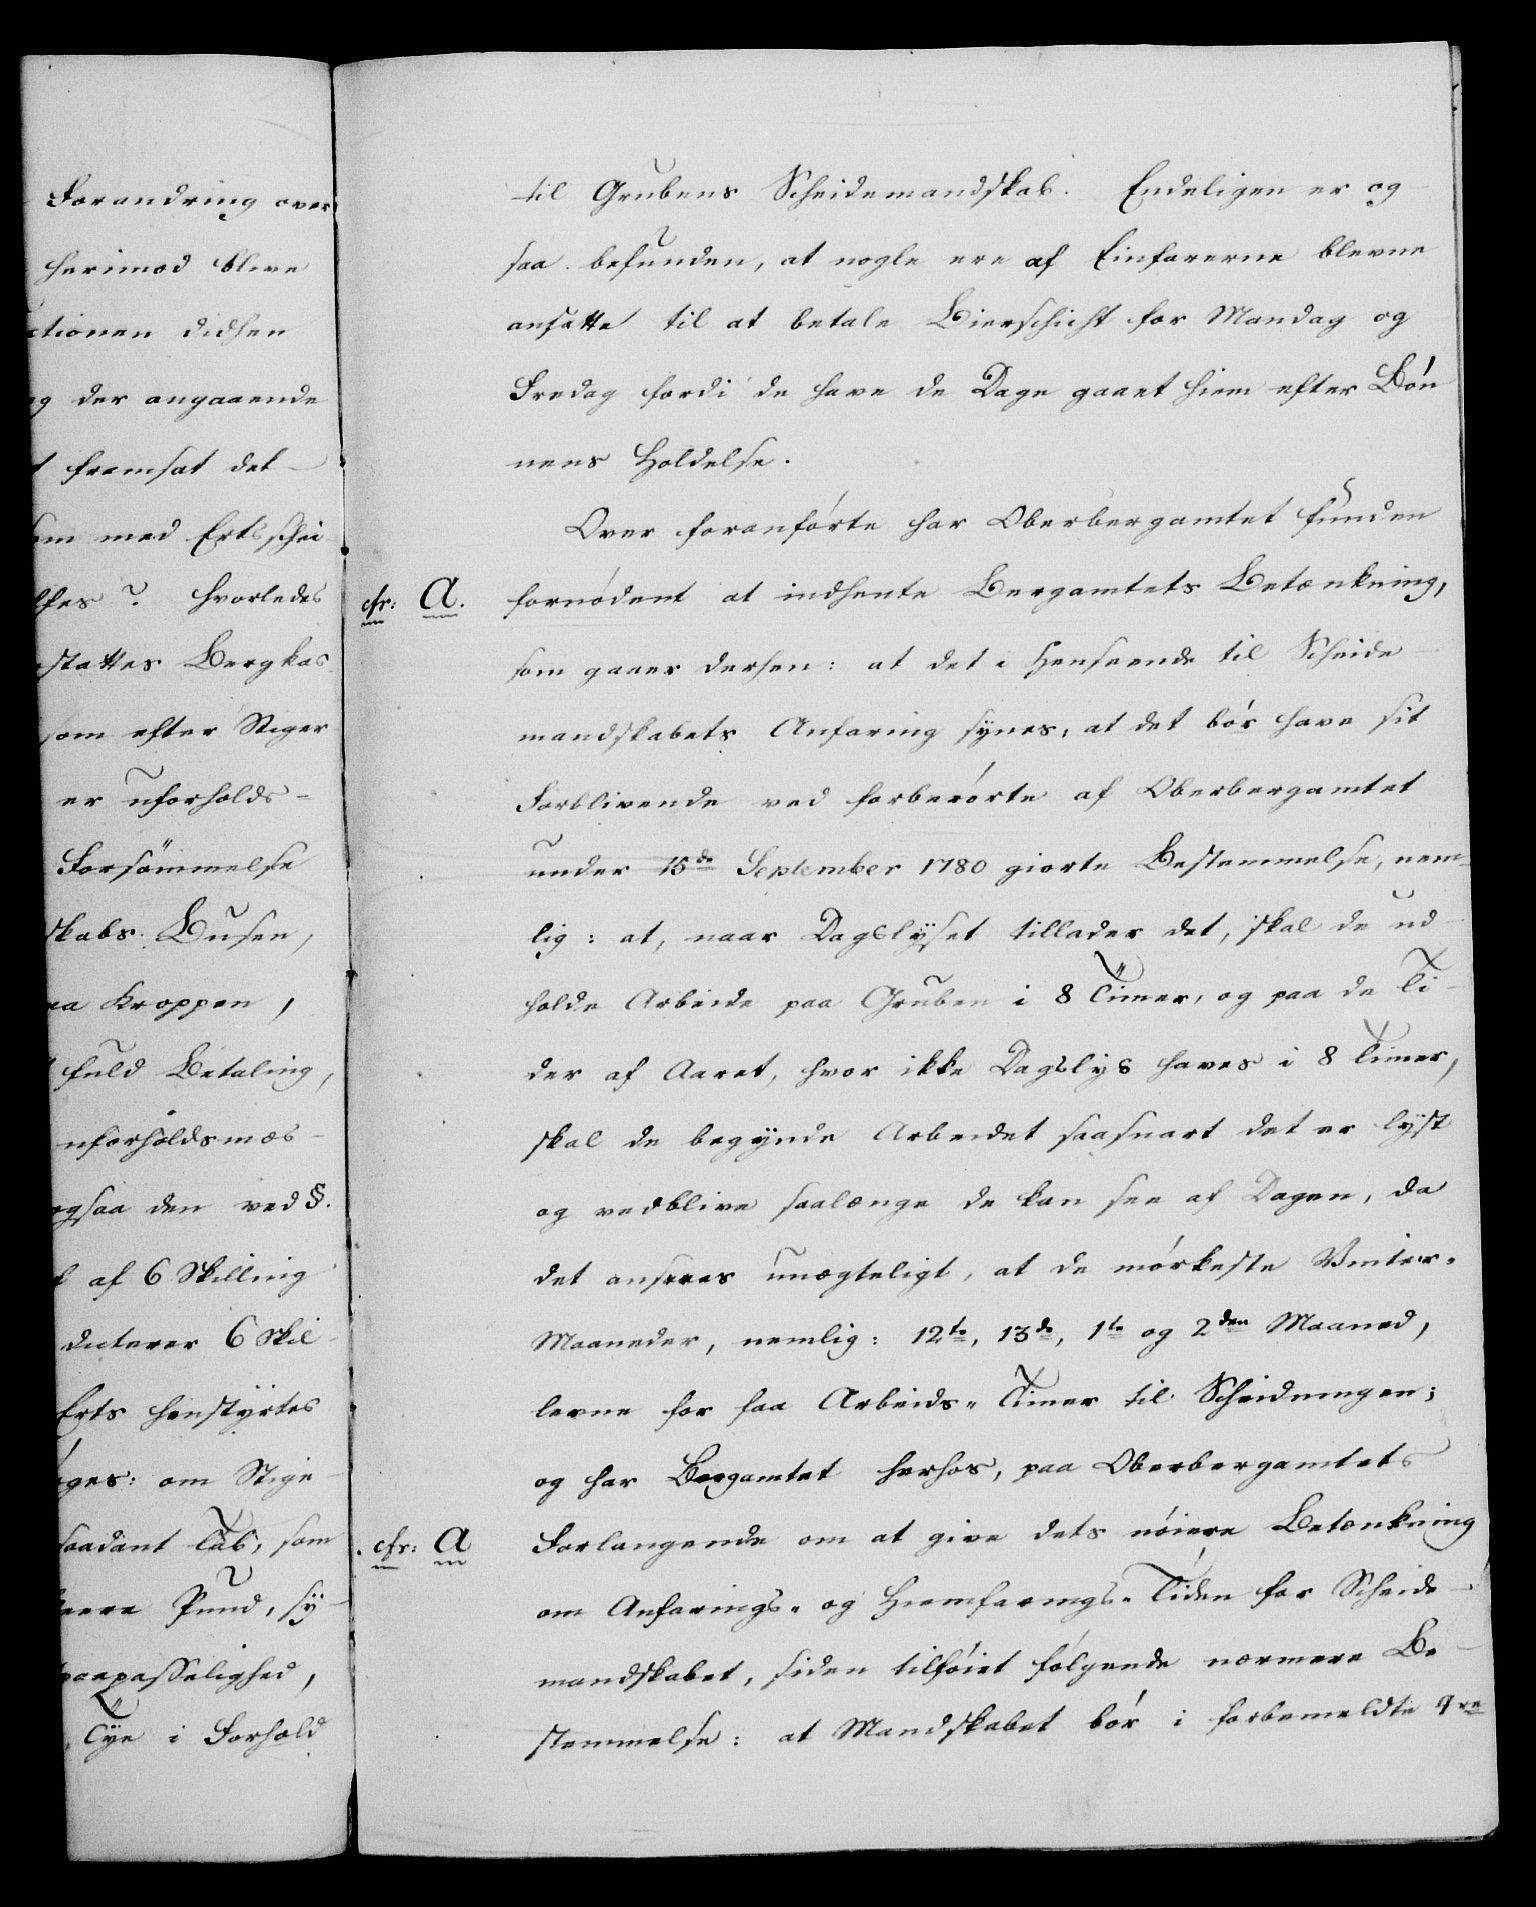 Forandring over
herimod blive
ctionen didhen
og der angaaende
t fremsat det
som med Ertsschei
lses? hvorledes
stattes Bergkas
som efter Stiger
er uforholds-
Forsömmelse
skabs Busen,
aa Kroppen,
fuld Betaling,
uforholdsmæs-
ogsaa den ved §.
t af 6 Skilling
ducerer 6 Skil-
Erts henstyrtes
öges: om Stige-
saadant Tab, som
Pund, sy-
paapasselighed,
Tye i Forhold
til Grubens Scheidemandskab. Endeligen er og-
saa befunden, at nogle ere af Einfarerne blevne
ansatte til at betale Bierschicht for Mandag og
Fredag fordi de have de Dage gaaet hiem efter Bön-
nens Holdelse.
Over foranförte har Oberbergamtet funden
cfr: A. fornödent at indhente Bergamtets Betænkning,
som gaaer derhen: at det i Henseende til Scheide-
mandskabets Anfaring synes, at det bör have sit
Forblivende ved forberörte af Oberbergamtet
under 15de September 1780 giorte Bestemmelse, nem-
lig: at, naar Dagslÿset tillader det, skal de ud-
holde Arbeide paa Gruben i 8 Timer, og paa de Ti-
der af Aaret, hvor ikke Dagslÿs haves i 8 Timer,
skal de begÿnde Arbeidet saasnart det er lÿst
og vedblive saalænge de kan see af Dagen, da
det ansees unægteligt, at de mörkeste Vinter-
Maaneder, nemlig: 12te, 13de, 1te og 2den Maaned,
levne for faa Arbeids-Timer til Scheidningen;
og har Bergamtet herhos, paa Oberbergamtets
cfr: A Forlangende om at give dets nöiere Betænkning
om Anfarings- og Hiemfarings-Tiden for Scheide-
mandskabet, siden tilföiet fölgende nærmere Be-
stemmelse: at Mandskabet bör i forbemeldte 4re